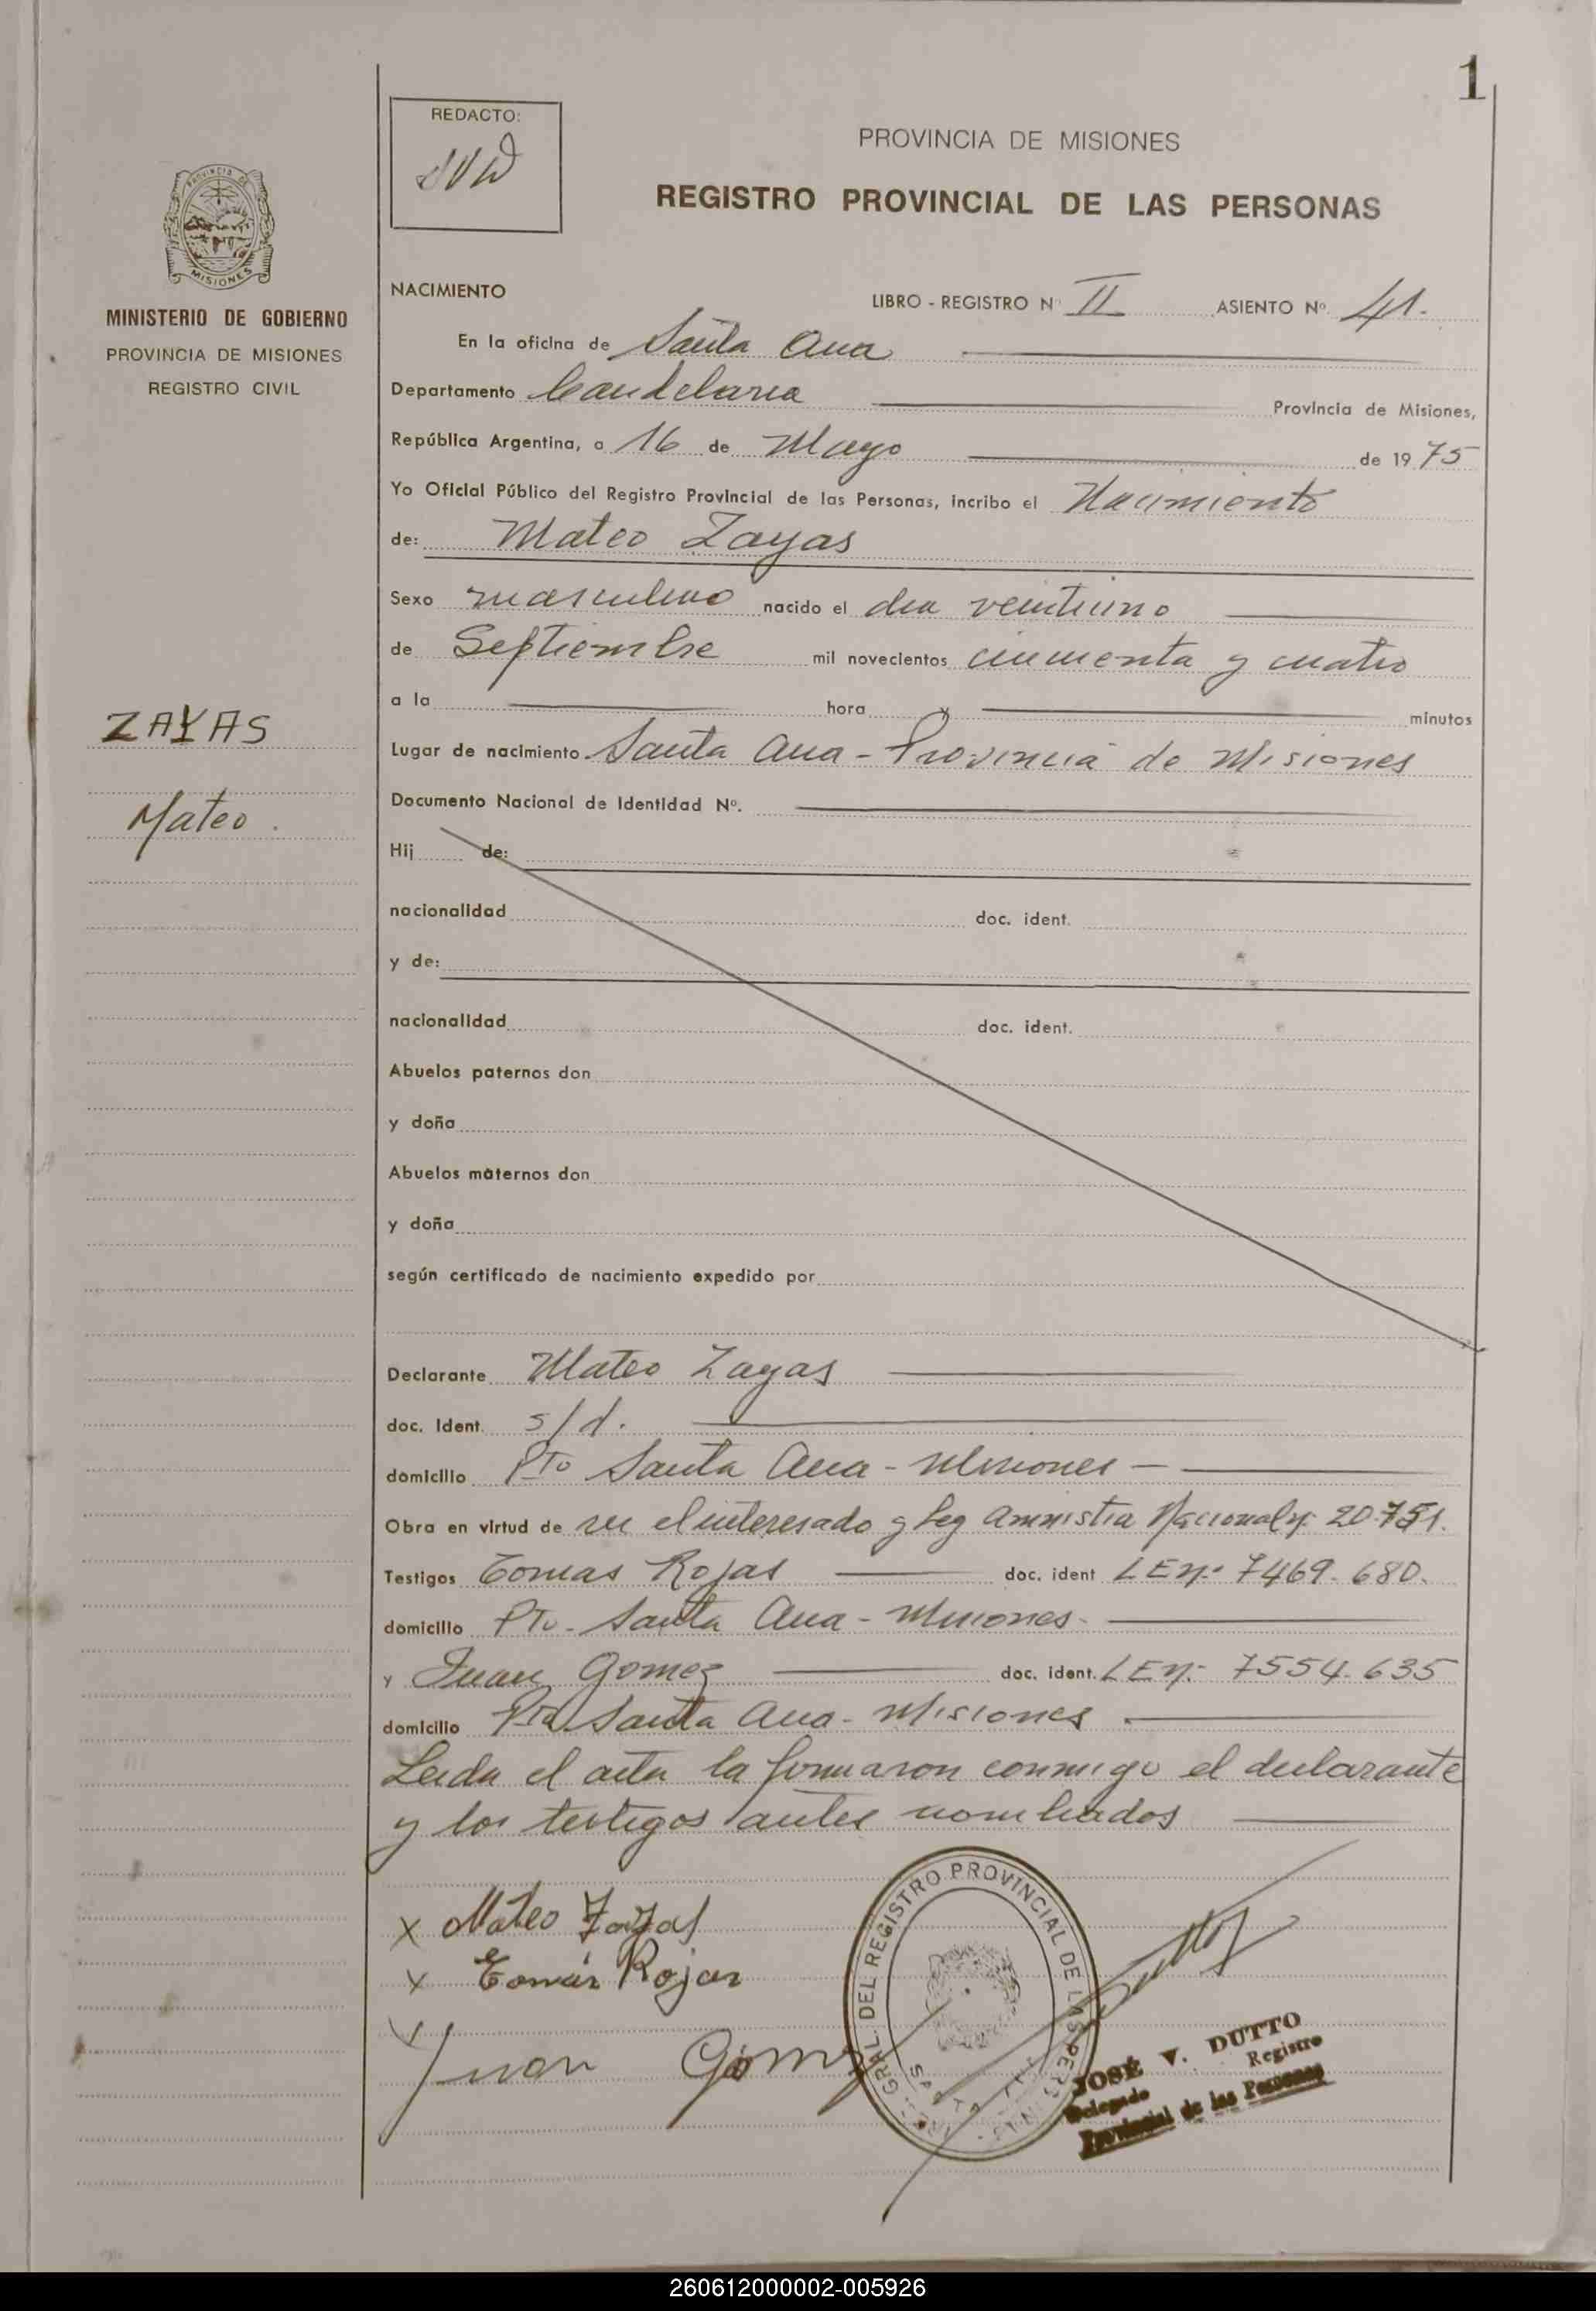 1
REDACTO:
PROVINCIA DE MISIONES
REGISTRO PROVINCIAL DE LAS PERSONAS
PROVINCIA DE
MISIONES
MINISTERIO DE GOBIERNO
PROVINCIA DE MISIONES
REGISTRO CIVIL
NACIMIENTO
LIBRO - REGISTRO Nº II ASIENTO Nº 41.
En la oficina de Santa Ana
Departamento Candelaria Provincia de Misiones,
República Argentina, a 16 de Mayo de 1975
Yo Oficial Público del Registro Provincial de las Personas, incribo el Nacimiento
de: Mateo Zayas
Sexo masculino nacido el dia veintiuno
de Septiembre mil novecientos cincuenta y cuatro
a la hora y minutos
ZAYAS
Mateo.
Lugar de nacimiento Santa Ana - Provincia de Misiones
Documento Nacional de Identidad Nº.
Hij de:
nacionalidad doc. ident.
y de:
nacionalidad doc. ident.
Abuelos paternos don
y doña
Abuelos maternos don
y doña
según certificado de nacimiento expedido por
Declarante Mateo Zayas
doc. Ident. s/d.
domicilio Pto Santa Ana - Misiones -
Obra en virtud de ser el interesado y Ley Amnistia Nacional nº 20.751.
Testigos Tomas Rojas doc. ident LE nº 7469.680.
domicilio Pto - Santa Ana - Misiones -
y Juan Gomez doc. ident. LE nº 7554.635
domicilio Pto Santa Ana - Misiones.
Leida el acta la firmaron conmigo el declarante
y los testigos antes nombrados
x Mateo Zayas
x Tomás Rojas
x Juan Gómez
GRAL. DEL REGISTRO PROVINCIAL DE LAS PERSONAS
JOSÉ V. DUTTO
Delegado Registro
Provincial de las Personas
260612000002-005926